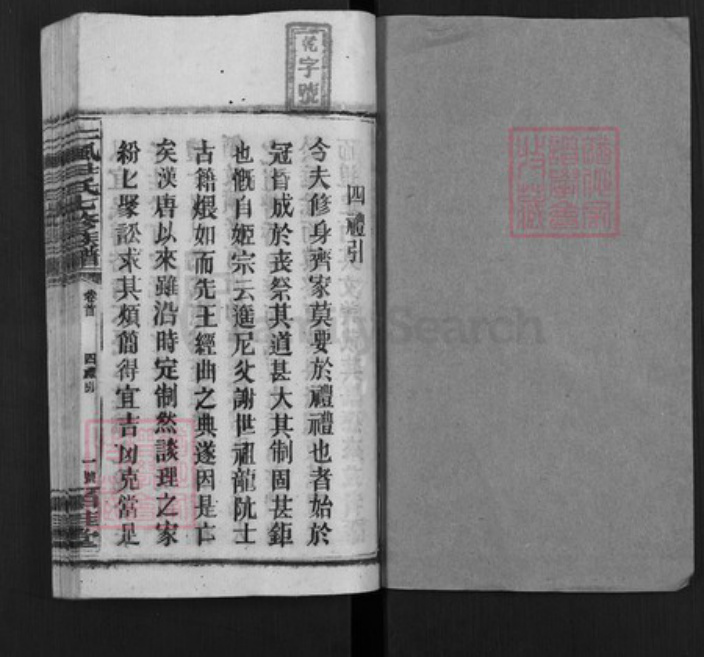 乾字號
四禮引
今夫修身齊家莫要於禮禮也者始於
冠昏成於喪祭其道甚大其制固甚鉅
也慨自姬宗云邈尼父謝世祖龍阬士
古籍煨如而先王經曲之典遂因是亡
矣漢唐以來雖沿時定制然談理之家
紛上聚訟求其煩簡得宜吉凶克當是
氏七修族譜
卷首
四禮引
一號
堂
FamilySearch